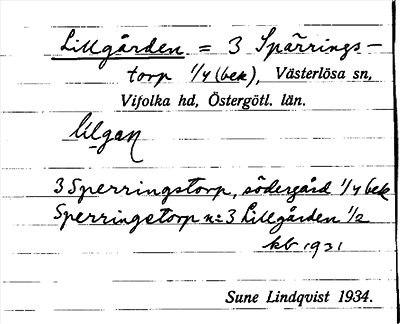 Lillgården = 3 Spärrings-
torp 1/4 (bek), Västerlösa sn,
Vifolka hd, Östergötl. län.
3 Sperringstorp, södergård 1/4 bek
Sperringstorp n:3 Lillgården 1/2
kb 1921
Sune Lindqvist 1934.